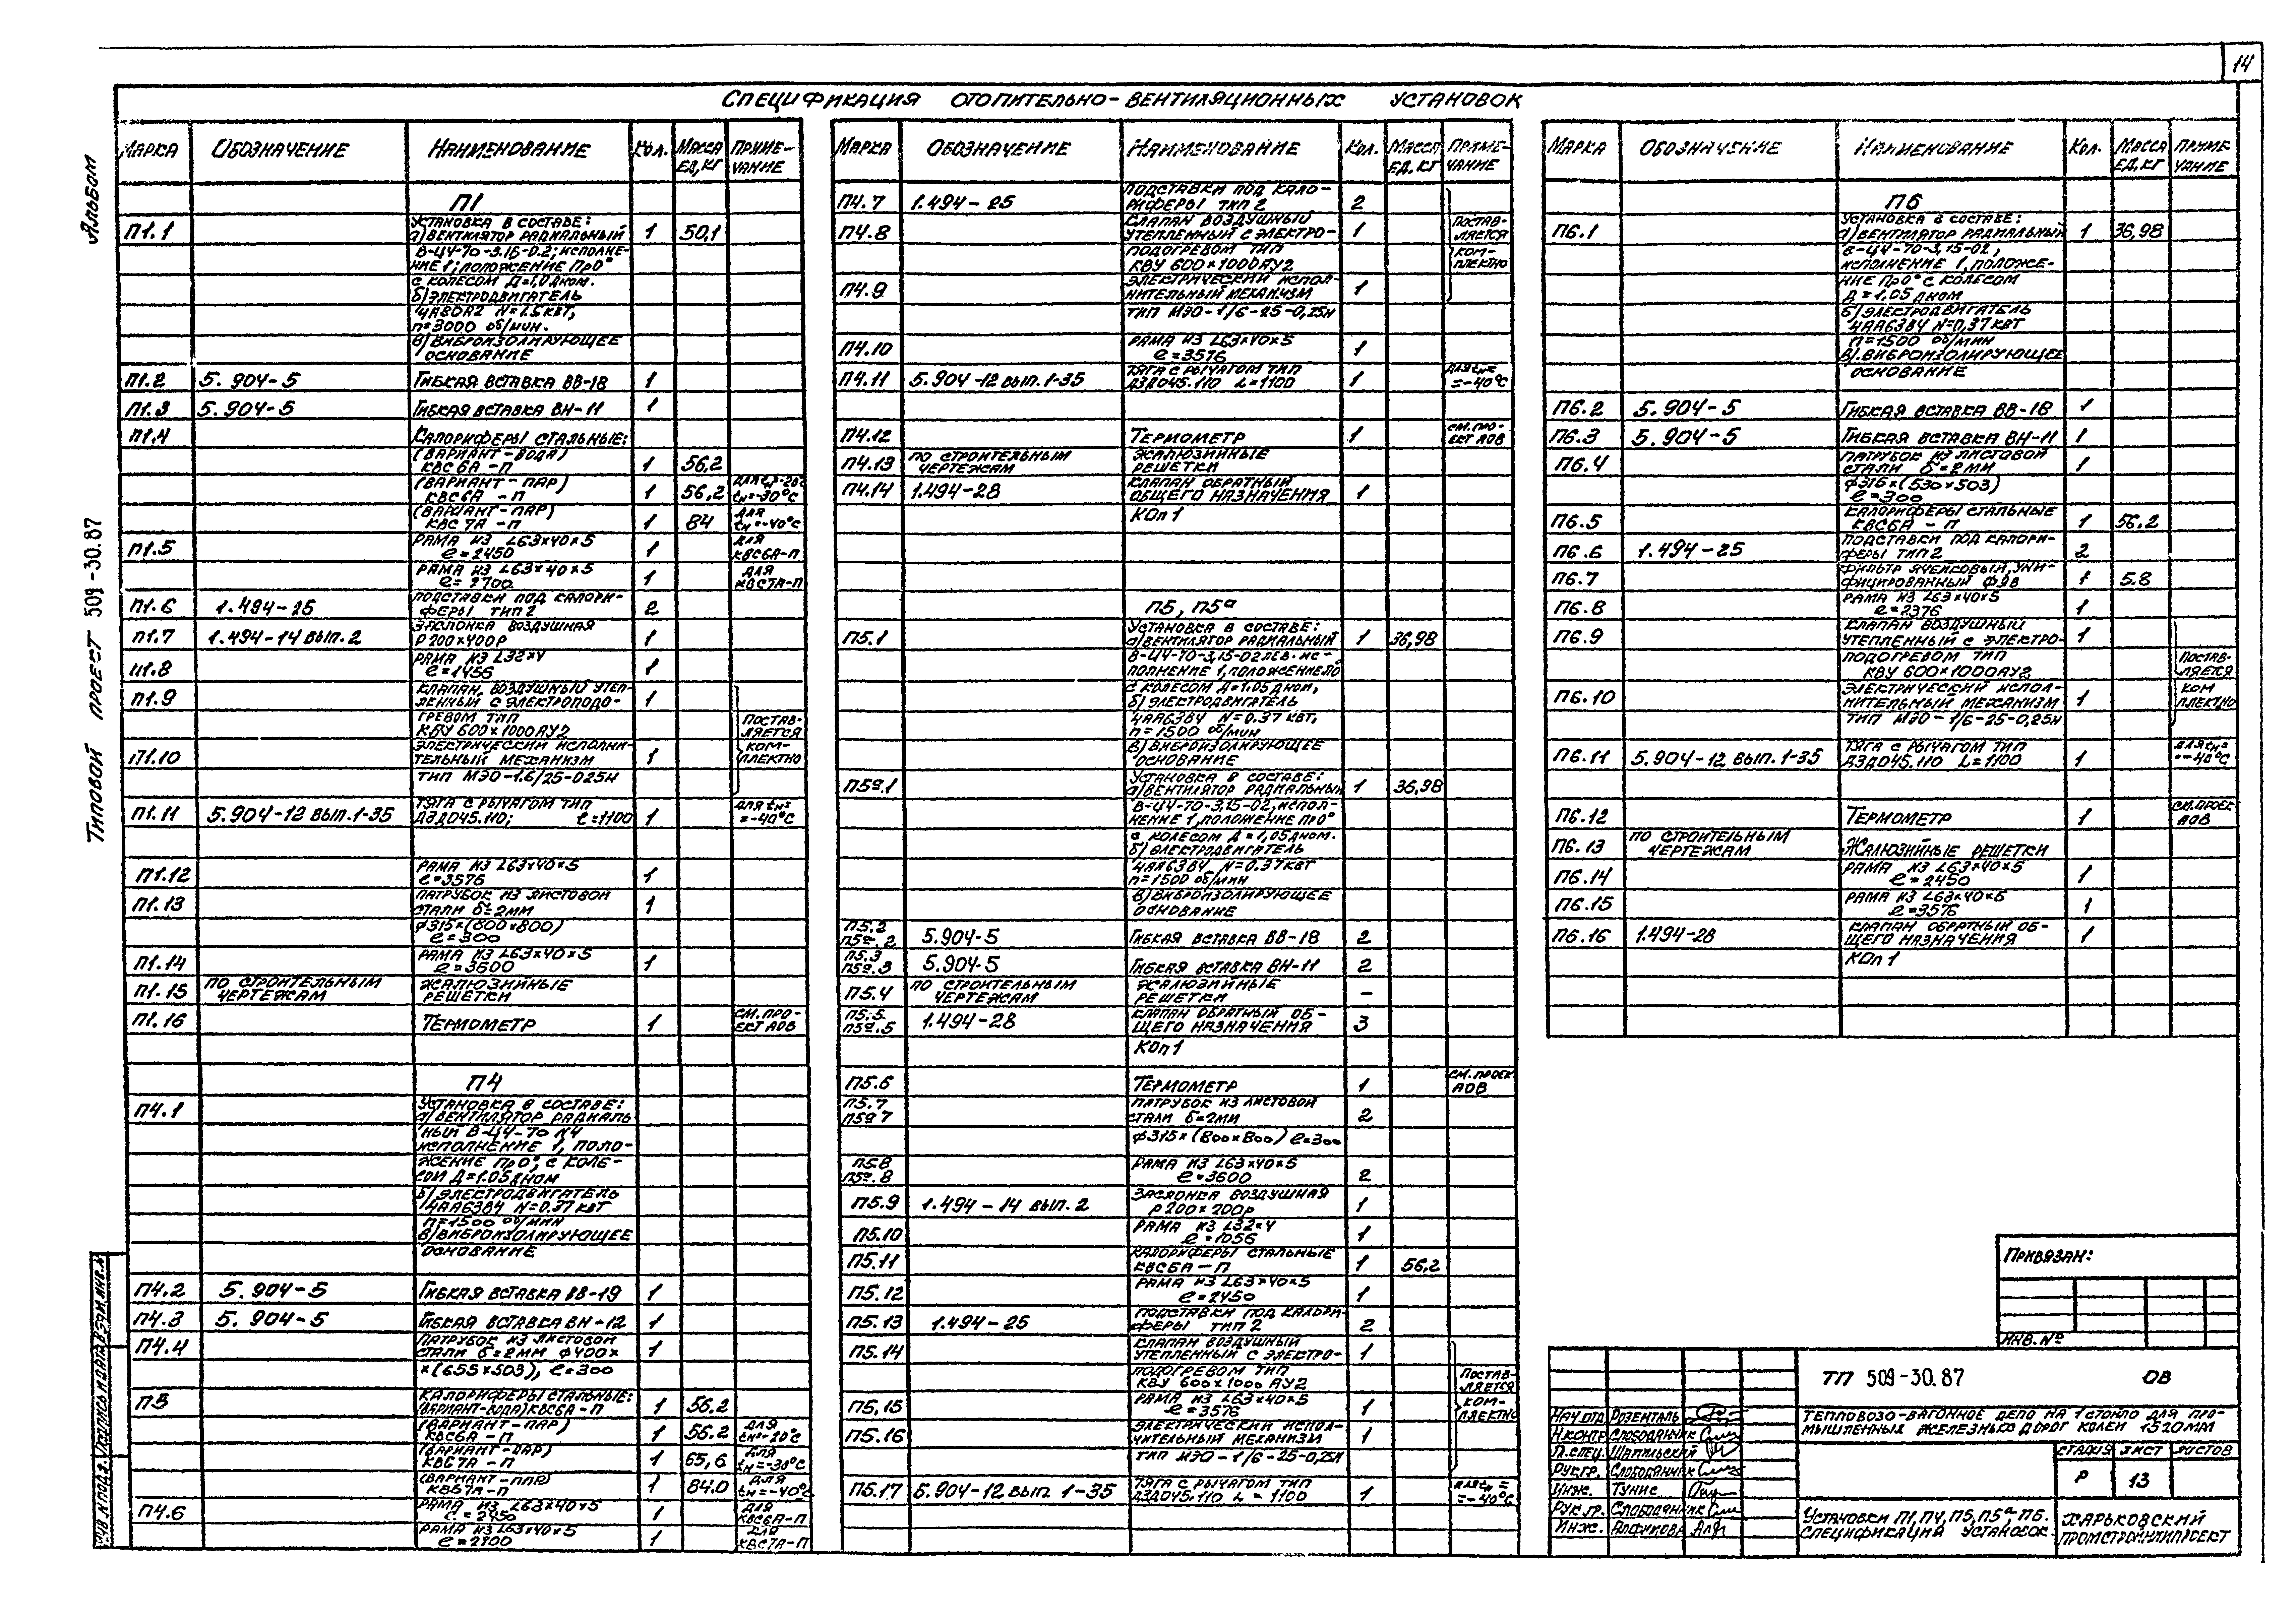 14
Спецификация отопительно-вентиляционных установок
Альбом
Типовой проект 509-30.87
Марка Обозначение Наименование Кол. Масса ед, кг Примечание
П1
П1.1 Установка в составе: а) вентилятор радиальный 1 50,1
В-Ц4-70-3.15-0.2; исполнение 1; положение Пр0°
с колесом Д=1,0 Дном.
б) электродвигатель
4А80А2 N=1.5 кВт,
n=3000 об/мин.
в) виброизолирующее
основание
П1.2 5.904-5 Гибкая вставка ВВ-18 1
П1.3 5.904-5 Гибкая вставка ВН-11 1
П1.4 Калориферы стальные:
(вариант-вода)
КВС 6А-П 1 56,2
(вариант-пар)
КВС6А-П 1 56,2 tн=-30°С
(вариант-пар)
КВС 7А-П 1 84 для tн=-40°С
П1.5 Рама из L63×40×5
ℓ=2450 1 для КВС6А-П
Рама из L63×40×5
ℓ=2700 1 для КВС7А-П
П1.6 1.494-25 Подставки под калориферы тип 2 2
П1.7 1.494-14 вып. 2 Заслонка воздушная
Р200×400Р 1
П1.8 Рама из L32×4
ℓ=1456 1
П1.9 Клапан воздушный утепленный с электроподо- 1
гревом тип
КВУ 600×1000АУ2
Поставляется комплектно
П1.10 Электрический исполнительный механизм 1
тип МЭО-1.6/25-025И
П1.11 5.904-12 вып. 1-35 Тяга с рычагом тип
Д3Д045.110; ℓ=1100 1 для tн= =-40°С
П1.12 Рама из L63×40×5
ℓ=3576 1
П1.13 Патрубок из листовой
стали δ=2мм 1
ф315×(800×800)
ℓ=300
П1.14 Рама из L63×40×5
ℓ=3600 1
П1.15 по строительным чертежам Жалюзийные
решетки
П1.16 Термометр 1 см. проект АОВ
П4
П4.1 Установка в составе:
а) вентилятор радиаль-
ный В-Ц4-70 N4
исполнение 1, поло-
жение Пр0°, с коле-
сом Д=1.05 Дном
б) электродвигатель
4АА63В4 N=0.37 кВт
n=1500 об/мин
в) виброизолирующее
основание
П4.2 5.904-5 Гибкая вставка ВВ-19 1
П4.3 5.904-5 Гибкая вставка ВН-12 1
П4.4 Патрубок из листовой
стали δ=2мм ф400× 1
×(655×503), ℓ=300
Калориферы стальные:
(вариант-вода) КВС6А-П 1 56.2
(вариант-пар)
КВС6А-П 1 56.2 для tн=-20°С
(вариант-пар)
КВС7А-П 1 65,6 для tн=-30°С
(вариант-пар)
КВБ7А-П 1 84.0 для tн=-40°С
П4.6 Рама из L63×40×5
ℓ=2450 1 для КВС6А-П
Рама из L63×40×5
ℓ=2700 1 для КВС7А-П
Марка Обозначение Наименование Кол. Масса ед, кг Примечание
П4.7 1.494-25 Подставки под калориферы тип 2 2
П4.8 Клапан воздушный
утепленный с электро- 1
подогревом тип
КВУ 600×1000АУ2
Поставляется комплектно
П4.9 Электрический исполнительный механизм 1
тип МЭО-1/6-25-0,25И
П4.10 Рама из L63×40×5
ℓ=3576 1
П4.11 5.904-12 вып. 1-35 Тяга с рычагом тип
Д3Д045.110 L=1100 1 для tн= =-40°С
П4.12 Термометр 1 см. проект АОВ
П4.13 по строительным чертежам Жалюзийные
решетки
П4.14 1.494-28 Клапан обратный
общего назначения 1
КОп1
П5, П5а
П5.1 Установка в составе:
а) вентилятор радиальный 1 36,98
В-Ц4-70-3,15-02 лев. ис-
полнение 1, положение Л0°
с колесом Д=1.05 Дном,
б) электродвигатель
4АА63В4 N=0.37 кВт,
n=1500 об/мин
в) виброизолирующее
основание
П5а.1 Установка в составе:
а) вентилятор радиальный 1 36,98
В-Ц4-70-3,15-02, испол-
нение 1, положение Пр0°
с колесом Д=1,05 Дном.
б) электродвигатель
4АА63В4 N=0.37 кВт
n=1500 об/мин
в) виброизолирующее
основание
П5.2 П5а.2 5.904-5 Гибкая вставка ВВ-18 2
П5.3 П5а.3 5.904-5 Гибкая вставка ВН-11 2
П5.4 по строительным чертежам Жалюзийные
решетки -
П5.5 П5а.5 1.494-28 Клапан обратный об-
щего назначения 3
КОп1
П5.6 Термометр 1 см. проек. АОВ
П5.7 П5а7 Патрубок из листовой
стали δ=2мм 2
ф315×(800×800) ℓ=300
П5.8 П5а.8 Рама из L63×40×5
ℓ=3600 2
П5.9 1.494-14 вып. 2 Заслонка воздушная
Р200×200Р 1
П5.10 Рама из L32×4
ℓ=1056 1
П5.11 Калориферы стальные
КВС6А-П 1 56,2
П5.12 Рама из L63×40×5
ℓ=2450 1
П5.13 1.494-25 Подставки под калориферы тип 2 2
П5.14 Клапан воздушный
утепленный с электро- 1
подогревом тип
КВУ 600×1000 АУ2
Поставляется комплектно
П5,15 Рама из L63×40×5
ℓ=3576 1
П5.16 Электрический исполнительный механизм 1
тип МЭО-1/6-25-0,25И
П5.17 5.904-12 вып. 1-35 Тяга с рычагом тип
Д3Д045.110 L=1100 1 для tн= =-40°С
Марка Обозначение Наименование Кол. Масса ед, кг Примечание
П6
П6.1 Установка в составе:
а) вентилятор радиальный 1 36,98
В-Ц4-70-3,15-02,
исполнение 1, положе-
ние Пр0° с колесом
Д=1,05 Дном
б) электродвигатель
4АА63В4 N=0,37 кВт
n=1500 об/мин
в) виброизолирующее
основание
П6.2 5.904-5 Гибкая вставка ВВ-18 1
П6.3 5.904-5 Гибкая вставка ВН-11 1
П6.4 Патрубок из листовой
стали δ=2мм 1
ф316×(530×503)
ℓ=300
П6.5 Калориферы стальные
КВС6А-П 1 56.2
П6.6 1.494-25 Подставки под калориферы тип 2 2
П6.7 Фильтр ячейковый, уни-
фицированный ФЯВ 1 5.8
П6.8 Рама из L63×40×5
ℓ=2376 1
П6.9 Клапан воздушный
утепленный с электро- 1
подогревом тип
КВУ 600×1000АУ2
Поставляется комплектно
П6.10 Электрический исполнительный механизм 1
тип МЭО-1/6-25-0,25И
П6.11 5.904-12 вып. 1-35 Тяга с рычагом тип
Д3Д045.110 L=1100 1 для tн= =-40°С
П6.12 Термометр 1 см. проек АОВ
П6.13 по строительным чертежам Жалюзийные решетки
П6.14 Рама из L63×40×5
ℓ=2450 1
П6.15 Рама из L63×40×5
ℓ=3576 1
П6.16 1.494-28 Клапан обратный об-
щего назначения 1
КОп1
Привязан:
Инв. №
ТП 509-30.87 ОВ
Тепловозо-вагонное депо на 1 стойло для про-
мышленных железных дорог колеи 1520мм
Стадия Лист Листов
Р 13
Нач. отд Розенталь
Н.контр Слободянник
Рук.гр. Слободянник
Инж. Тунис
Рук.гр. Слободянник
Инж.
Установки П1, П4, П5, П5а, П6.
Спецификация установок.
Харьковский
Промстройниипроект
Инв. № подл. Подпись и дата Взам. инв. №